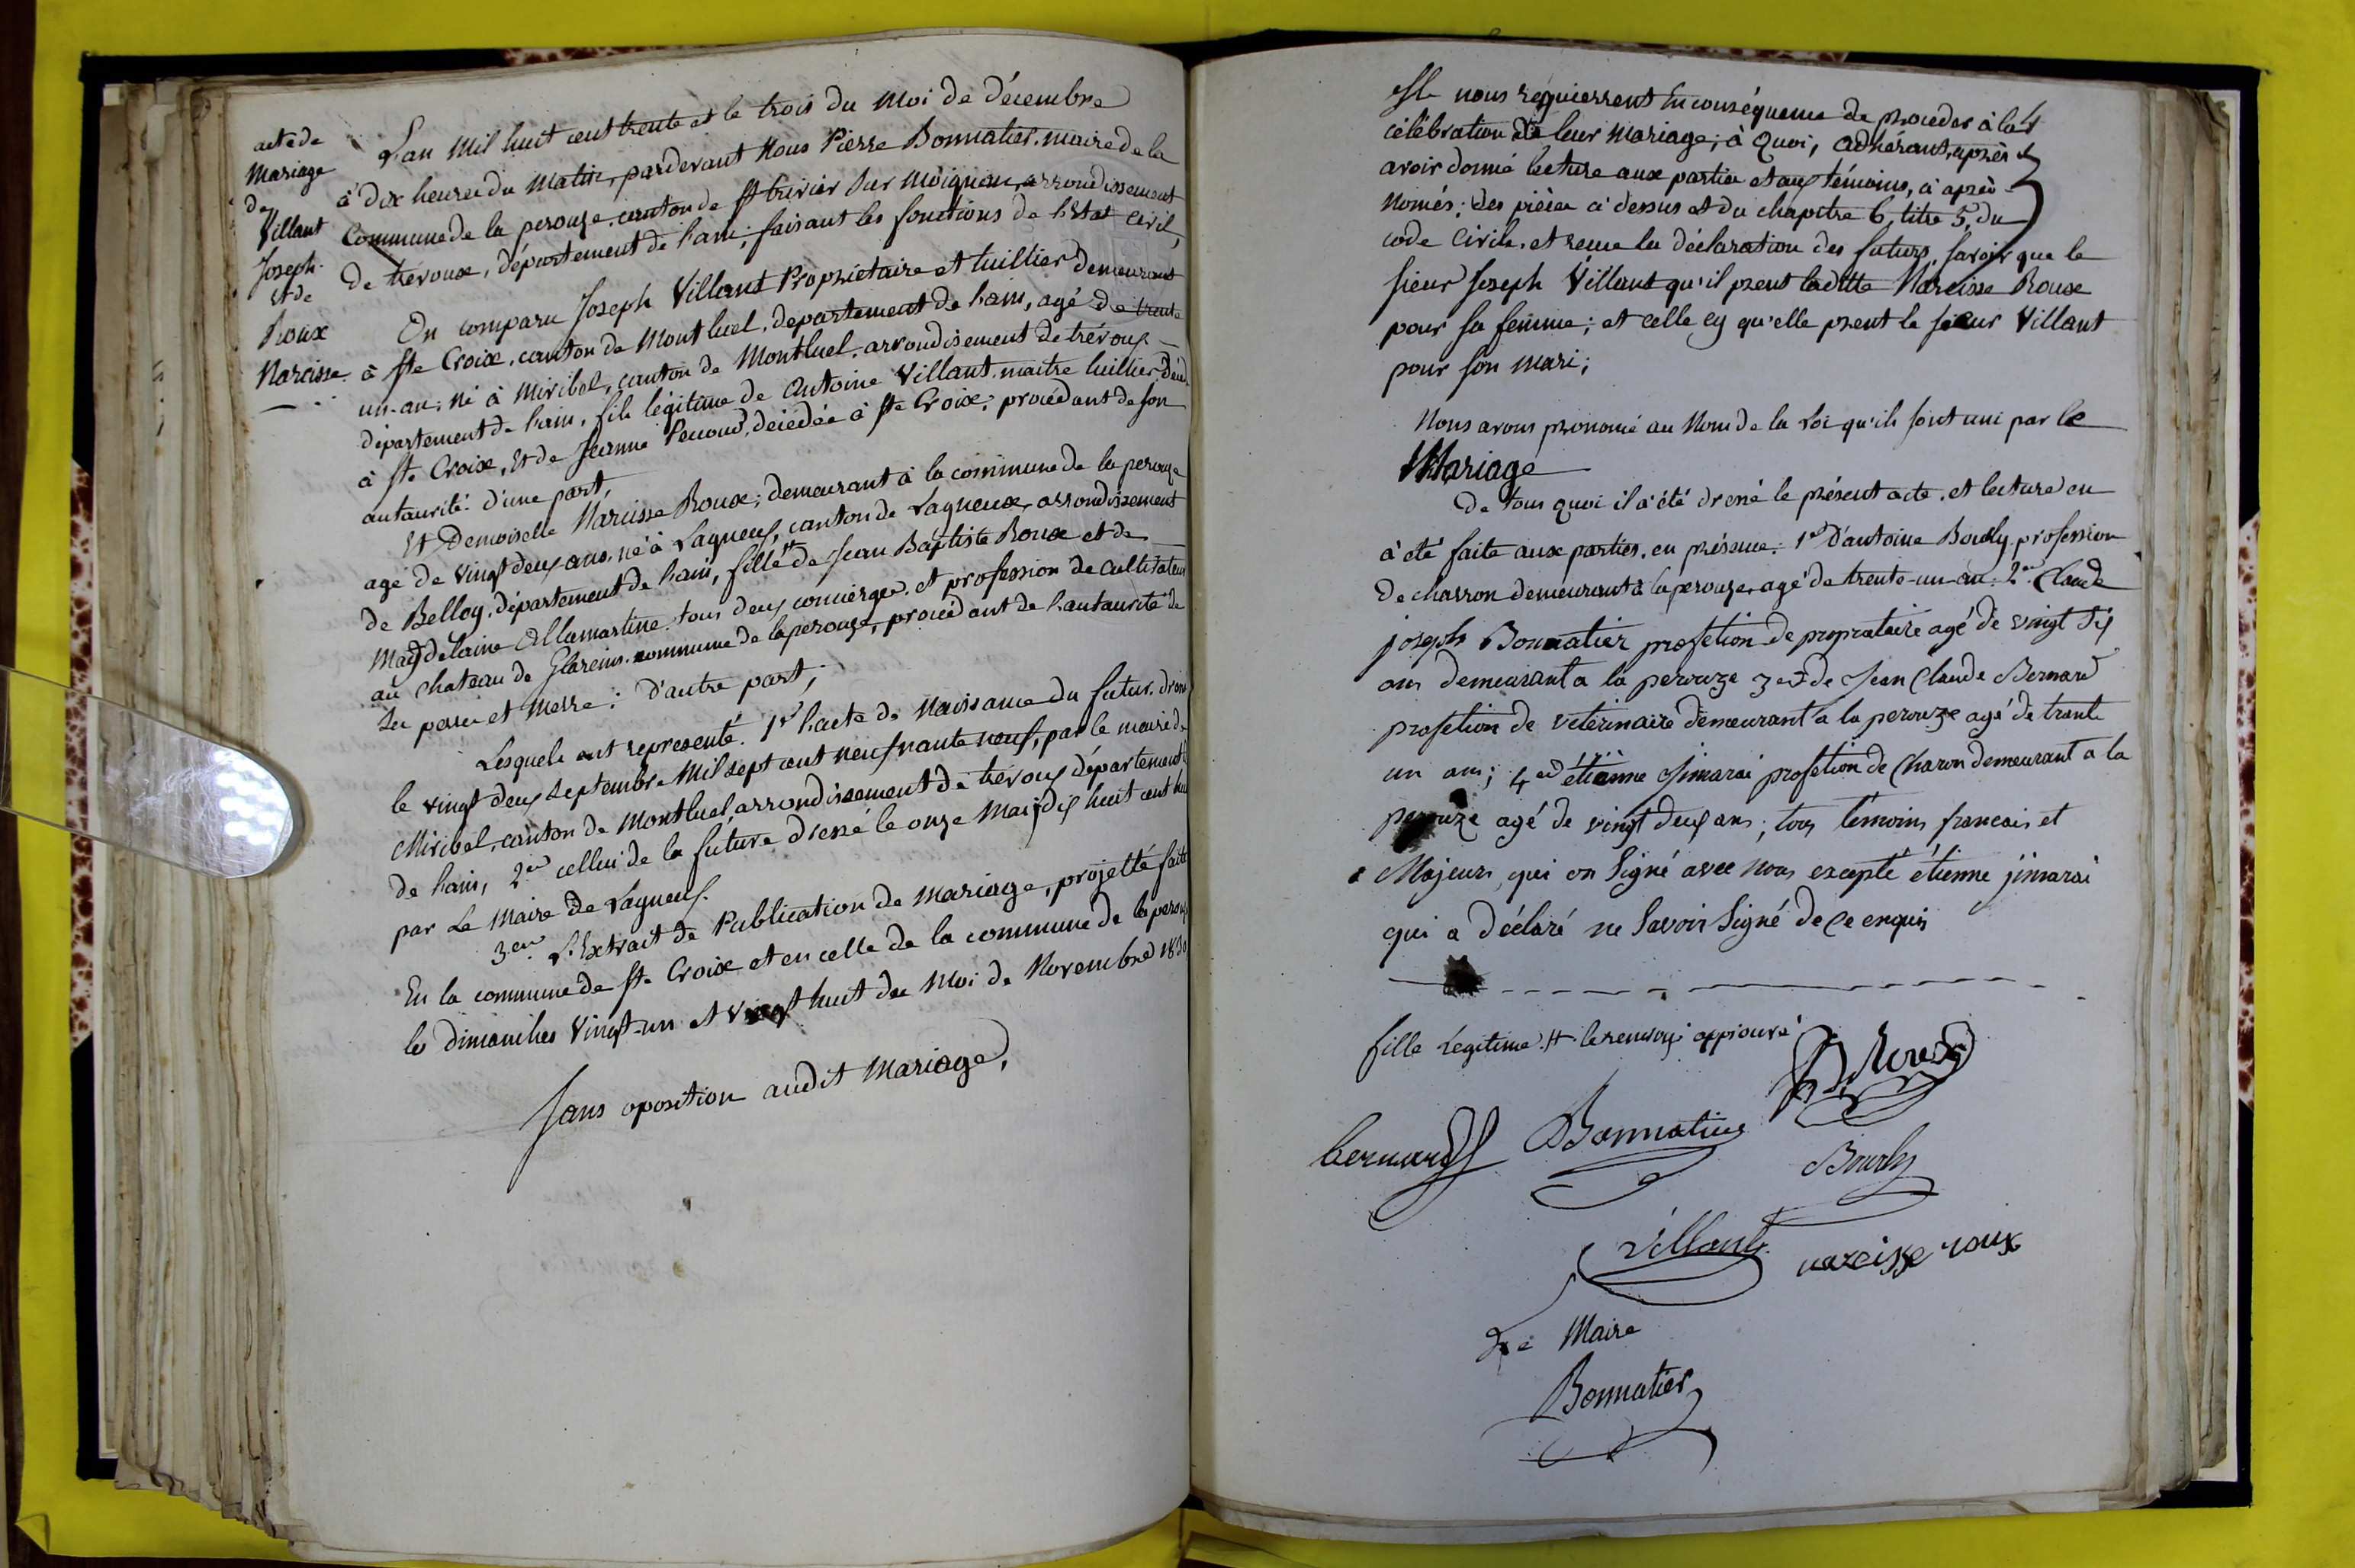 acte de
Mariage
de
Villant
Joseph.
et de
Roux
Narcisse.
L'an Mil huit cent trente et le trois du Moi de décembre
à dix heures du Matin, pardevant Nous Pierre Bonnatier. maire de la
Commune de la perouze. canton de St trivier sur Moignans, arrondissement
de trévoux, département de l'ain; faisant les fonctions de l'Etat Civil,
On comparu Joseph Villant Propriétaire et tuillier demeurant
à Ste Croix. canton de Montluel. département de l'ain, agé de trente
un-an; né à Miribel, canton de Montluel. arrondisement de trévoux
département de l'ain, fils légitime de Antoine Villant. maitre tuillier,
à Ste Croix, Et de Jeanne décédée à Ste Croix; procédant de son
autaurité. d'une part,
Et Demoiselle Narcisse Roux; demeurant à la commune de la perouze
agé de vingt deux ans, né à Lagneux, canton de Lagneux, arrondissement
de Belley. département de l'ain, fille # de Jean Baptiste Roux et de
Magdelaine Allamartine. tous deux concierges. et profession de cultivateur
au Chateau de Glareins. commune de laperouze, procédant de l'autaurité de
ses peres et Merre; d'autre part;
Lesquels ont représenté. 1er l'acte de Naissance du futur, dressé
le vingt deux Septembre Mil sept cent neufnante neuf, par le maire de
Miribel, canton de Montluel, arrondissement de trévoux département
de l'ain, 2em cellui de la future dressé le onze Mai dix huit cent huit
par Le Maire de Lagneux.
3em. L'Extrait de Publication de Mariage, projetté faite
En la commune de Ste Croix et en celle de la commune de la perouze
les dimanches Vingt-un et vingt huit du Moi de Novembre 1830
Sans oposition audit Mariage,
Ils nous réquierrent En conséquence de proceder à la
célébration de leur Mariage; à Quoi, adhérant, après
avoir donné lecture aux parties et aux témoins, ci après
Només; des pièces ci dessus et du chapitre 6, titre 5, du
code Civile. et recue la déclaration des futurs, Savoir que le
sieur Joseph Villant qu'il prent laditte Narcisse Roux
pour sa femme; et celle cy qu'elle prent le sieur Villant
pour son mari;
Nous avons prononcé au Nom de la Loi qu'ils sont uni par le
Mariage
De tous quoi il a été dressé le présent acte. et lecture en
à été faite aux parties. en présence; 1er D'antoine Bourly. profession
De charron demeurant à la perouze. agé de trente-un-an. 2em. Claude
joseph Bonnatier profetion de propriataire agé de vingt six
ans demeurant a la perouze 3em de Jean Claude Bernard
profetion de vétérinaire demeurant a la perouze agé de trante
un ans; 4em étienne Jimarai profetion de Charon demeurant a la
perouze agé de vingt deux ans; tous témoins francais et
Majeurs, qui on Signé avec nous excepté étienne jimarai
qui a déclaré ne Savoir Signé de ce enquis
fille Légitime. # le renvoy approuvé
Roux
bernard Bonnatier
Bourly
Villant narcisse roux
Le Maire
Bonnatier